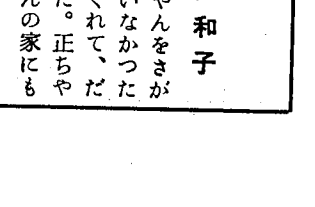 和子
やんをさが
いなかつた
くれて、だ
た。正ちや
んの家にも